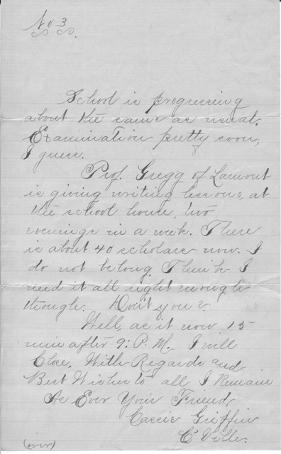 No 3
School is progressing
about the same as usual.
Examination pretty soon,
I guess.
Prof. Gregg of Lamont
is giving writing lessons, at
the school house, two
evenings in a week. There
is about 40 scholars now. I
do not belong. Think I
need it all right enough
though. Don't you?
Well, as it now 15
min after 9: P.M. I will
Close, With Regards and
Best Wishes to all I Remain
As Ever Your Friend,
Carrie Griffin
(over)